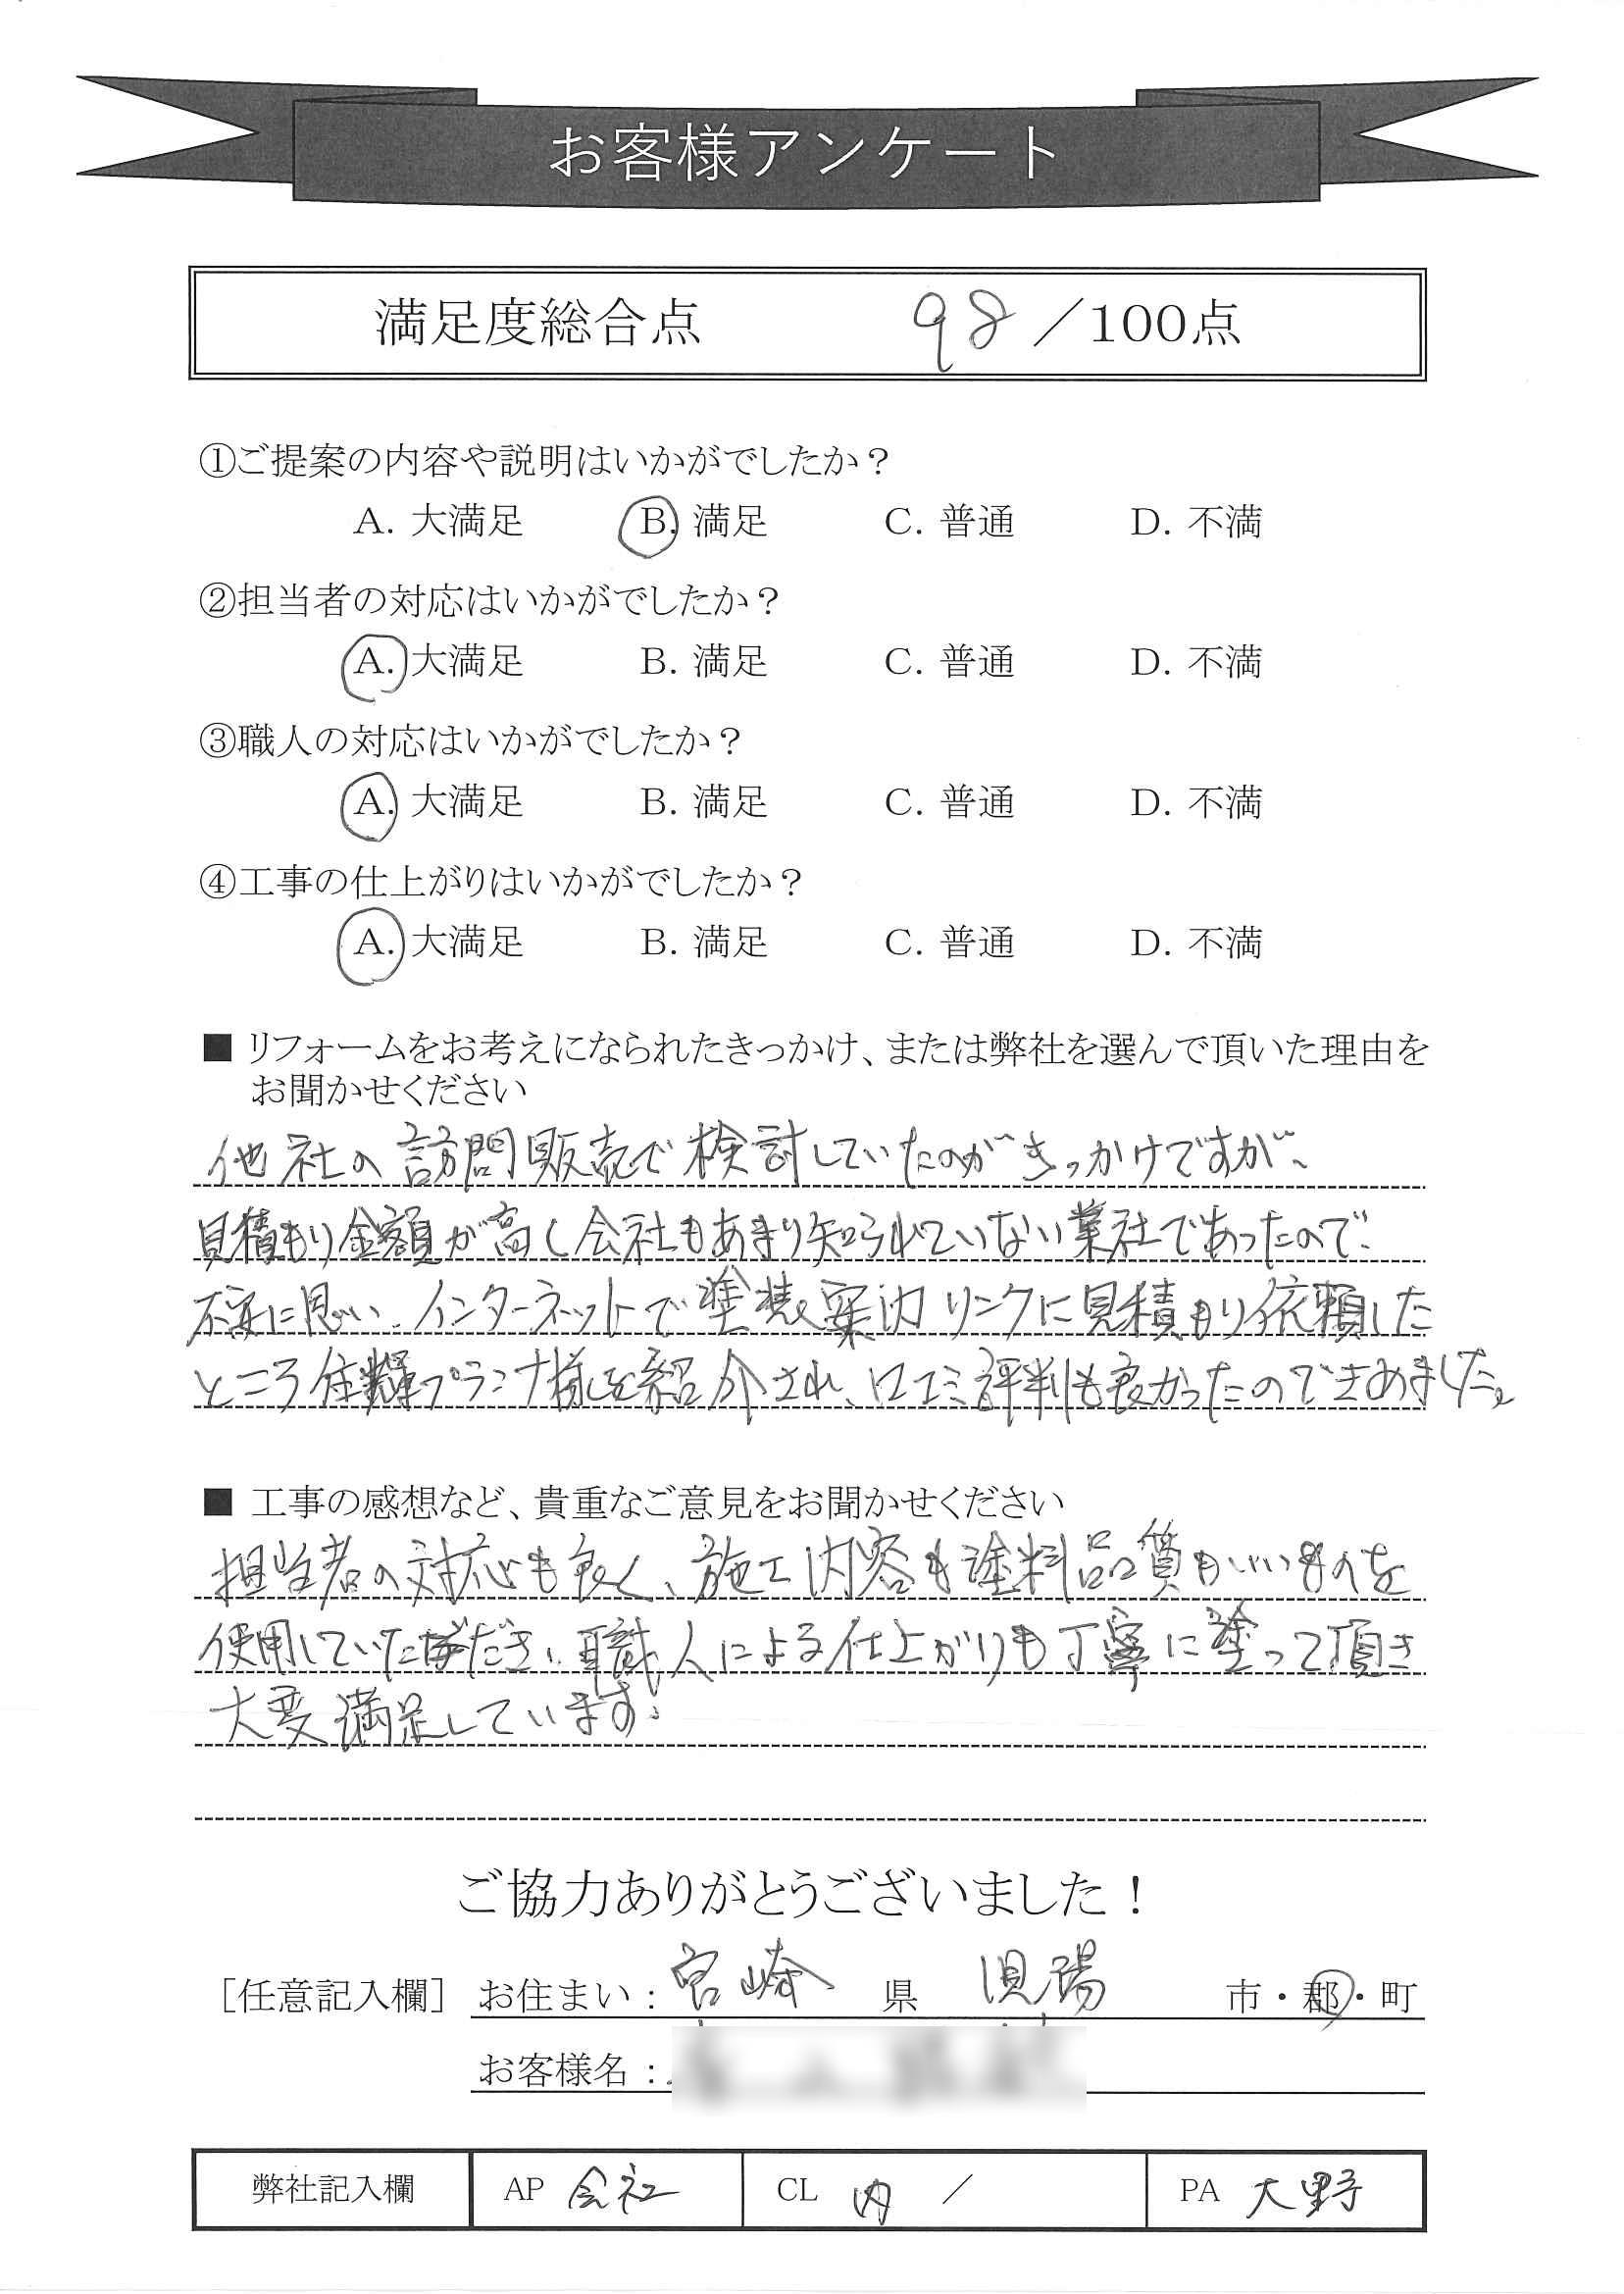 お客様アンケート
満足度総合点 98／100点
①ご提案の内容や説明はいかがでしたか？
A. 大満足 B. 満足 C. 普通 D. 不満
②担当者の対応はいかがでしたか？
A. 大満足 B. 満足 C. 普通 D. 不満
③職人の対応はいかがでしたか？
A. 大満足 B. 満足 C. 普通 D. 不満
④工事の仕上がりはいかがでしたか？
A. 大満足 B. 満足 C. 普通 D. 不満
■ リフォームをお考えになられたきっかけ、または弊社を選んで頂いた理由を
お聞かせください
他社の訪問販売で検討していたのがきっかけですが、
見積もり金額が高く会社もあまり知られていない業社であったので、
不安に思い、インターネットで塗装案内リンクに見積もり依頼した
ところ住輝プランナ様を紹介され、口コミ評判も良かったのできめました。
■ 工事の感想など、貴重なご意見をお聞かせください
担当者の対応も良く、施工内容も塗料品質もいいものを
使用していただき、職人による仕上がりも丁寧に塗って頂き
大変満足しています。
ご協力ありがとうございました！
［任意記入欄］ お住まい：宮崎 県 児湯 市・郡・町
お客様名：
弊社記入欄 AP 会社 CL 内 ／ PA 大野